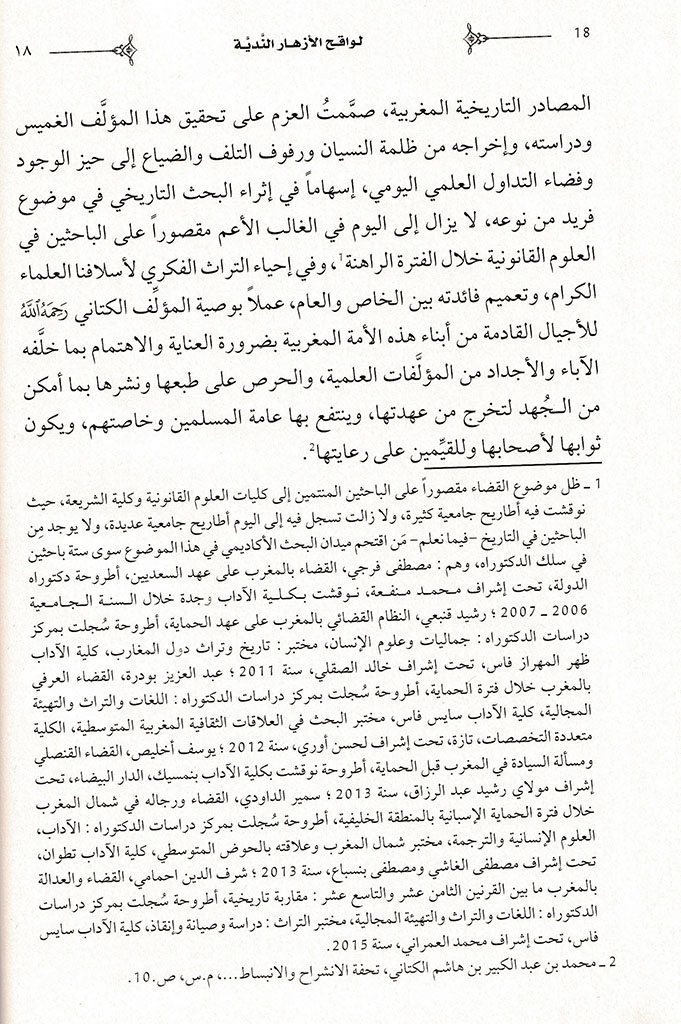 18
لواقح الأزهار النَّديَّة
١٨
المصادر التاريخية المغربية، صمَّمتُ العزم على تحقيق هذا المؤلَّف الغميس
ودراسته، وإخراجه من ظلمة النسيان ورفوف التلف والضياع إلى حيز الوجود
وفضاء التداول العلمي اليومي، إسهاماً في إثراء البحث التاريخي في موضوع
فريد من نوعه، لا يزال إلى اليوم في الغالب الأعم مقصوراً على الباحثين في
العلوم القانونية خلال الفترة الراهنة1، وفي إحياء التراث الفكري لأسلافنا العلماء
الكرام، وتعميم فائدته بين الخاص والعام، عملاً بوصية المؤلِّف الكتاني رَحِمَهُ ٱللَّهُ
للأجيال القادمة من أبناء هذه الأمة المغربية بضرورة العناية والاهتمام بما خلَّفه
الآباء والأجداد من المؤلَّفات العلمية، والحرص على طبعها ونشرها بما أمكن
من الـجُهد لتخرج من عهدتها، وينتفع بها عامة المسلمين وخاصتهم، ويكون
ثوابها لأصحابها وللقيِّمين على رعايتها2.
1 ـ ظل موضوع القضاء مقصوراً على الباحثين المنتمين إلى كليات العلوم القانونية وكلية الشريعة، حيث
نوقشت فيه أطاريح جامعية كثيرة، ولا زالت تسجل فيه إلى اليوم أطاريح جامعية عديدة، ولا يوجد مِن
الباحثين في التاريخ –فيما نعلم– مَن اقتحم ميدان البحث الأكاديمي في هذا الموضوع سوى ستة باحثين
في سلك الدكتوراه، وهم : مصطفى فرجي، القضاء بالمغرب على عهد السعديين، أطروحة دكتوراه
الدولة، تحت إشراف محمـد منـفـعة، نـوقشت بكـلـية الآداب وجدة خلال السـنة الـجـامـعية
2006 ـ 2007 ؛ رشيد قنبعي، النظام القضائي بالمغرب على عهد الحماية، أطروحة سُجلت بمركز
دراسات الدكتوراه : جماليات وعلوم الإنسان، مختبر : تاريخ وتراث دول المغارب، كلية الآداب
ظهر المهراز فاس، تحت إشراف خالد الصقلي، سنة 2011 ؛ عبد العزيز بودرة، القضاء العرفي
بالمغرب خلال فترة الحماية، أطروحة سُجلت بمركز دراسات الدكتوراه : اللغات والتراث والتهيئة
المجالية، كلية الآداب سايس فاس، مختبر البحث في العلاقات الثقافية المغربية المتوسطية، الكلية
متعددة التخصصات، تازة، تحت إشراف لحسن أوري، سنة 2012 ؛ يوسف أخليص، القضاء القنصلي
ومسألة السيادة في المغرب قبل الحماية، أطروحة نوقشت بكلية الآداب بنمسيك، الدار البيضاء، تحت
إشراف مولاي رشيد عبد الرزاق، سنة 2013 ؛ سمير الداودي، القضاء ورجاله في شمال المغرب
خلال فترة الحماية الإسبانية بالمنطقة الخليفية، أطروحة سُجلت بمركز دراسات الدكتوراه : الآداب،
العلوم الإنسانية والترجمة، مختبر شمال المغرب وعلاقته بالحوض المتوسطي، كلية الآداب تطوان،
تحت إشراف مصطفى الغاشي ومصطفى بنسباع، سنة 2013 ؛ شرف الدين احمامي، القضاء والعدالة
بالمغرب ما بين القرنين الثامن عشر والتاسع عشر : مقاربة تاريخية، أطروحة سُجلت بمركز دراسات
الدكتوراه : اللغات والتراث والتهيئة المجالية، مختبر التراث : دراسة وصيانة وإنقاذ، كلية الآداب سايس
فاس، تحت إشراف محمد العمراني، سنة 2015.
2 ـ محمد بن عبد الكبير بن هاشم الكتاني، تحفة الانشراح والانبساط...، م.س، ص.10.